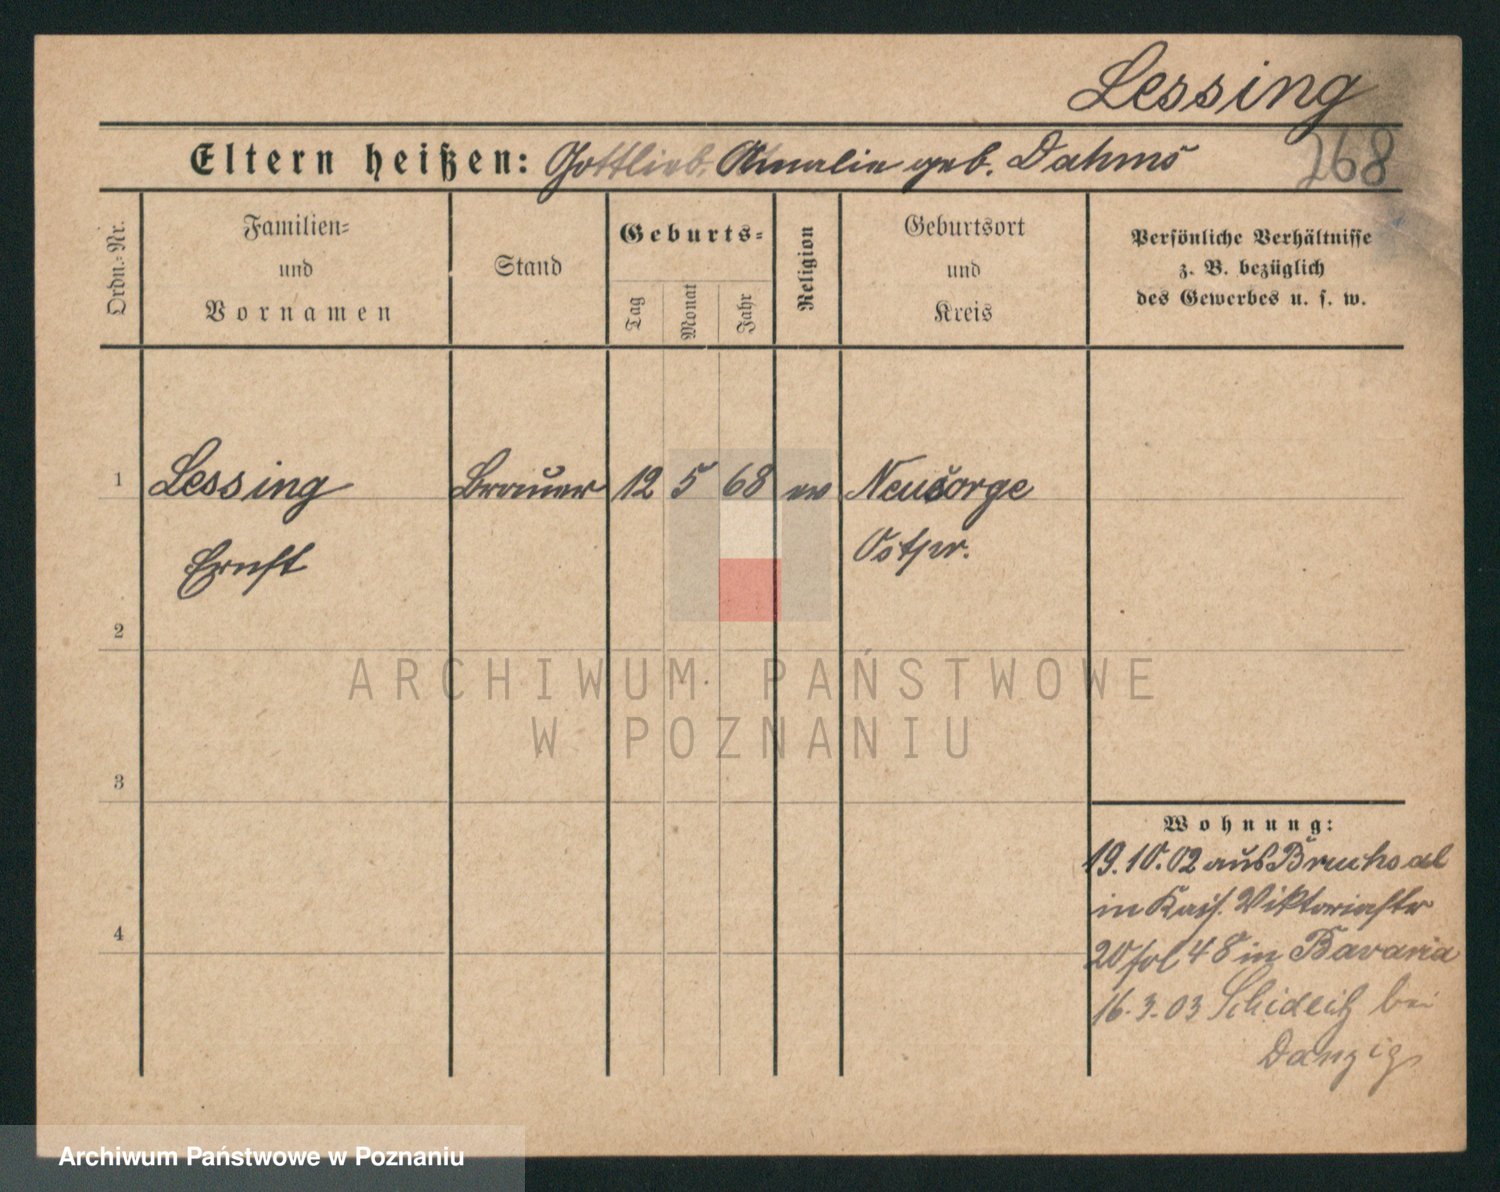 Lessing
Eltern heißen: Gottlieb. Amalie geb. Dahms
268
Ordn.-Nr.
Familien-
und
Vornamen
Stand
Geburts-
Tag
Monat
Jahr
Religion
Geburtsort
und
Kreis
Persönliche Verhältnisse
z. B. bezüglich
des Gewerbes u. s. w.
1 Lessing Brauer 12 5 68 ev Neusorge
Ernst Ostpr.
2
ARCHIWUM PAŃSTWOWE
W POZNANIU
3
Wohnung:
19.10.02 aus Bruchsal
in Kais. Viktoriastr
4
20 fol 48 in Bavaria
16.3.03 Schidlitz bei
Danzig
Archiwum Państwowe w Poznaniu